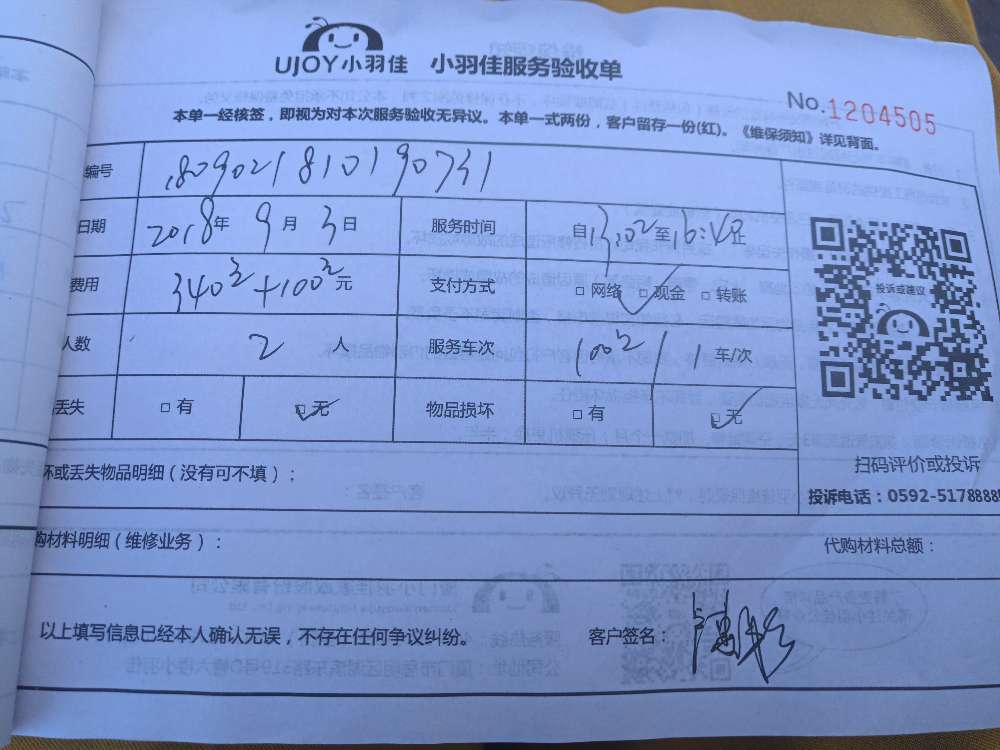 UJOY小羽佳 小羽佳服务验收单
No.1204505
本单一经核签，即视为对本次服务验收无异议。本单一式两份，客户留存一份(红)。《维保须知》详见背面。
编号 1809021810190731
日期 2018年 9月 3日 服务时间 自13:02至16:40止
费用 340元+100元元 支付方式 □ 网络 □ 现金 □ 转账
人数 2 人 服务车次 100元/1 车/次
丢失 □ 有 □ 无 物品损坏 □ 有 □ 无
投诉或建议
扫码评价或投诉
投诉电话：0592-5178888
坏或丢失物品明细（没有可不填）：
购材料明细（维修业务）： 代购材料总额：
以上填写信息已经本人确认无误，不存在任何争议纠纷。 客户签名：